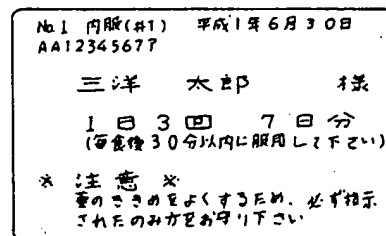 No.1 内服(#1) 平成1年6月30日
AA12345677
三洋 太郎 様
1日3回 7日分
(毎食後30分以内に服用して下さい)
※ 注意 ※
薬のききめをよくするため、必ず指示
されたのみ方をお守り下さい